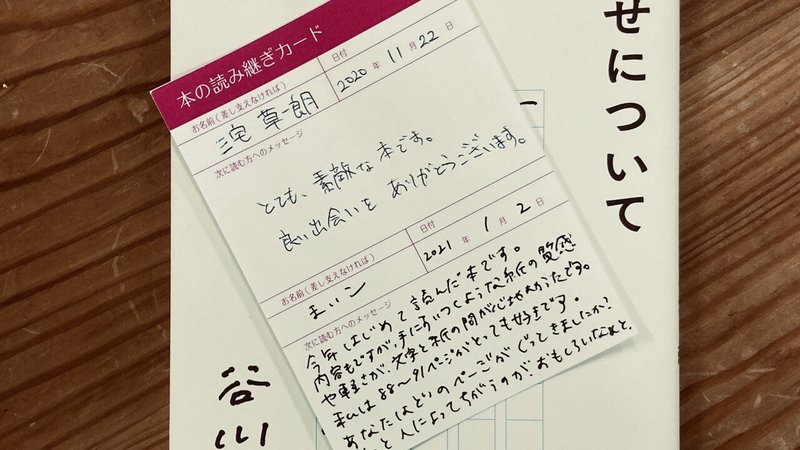 本の読み継ぎカード
お名前(差し支えなければ)
三宅 草朗
日付
2020年 11月 22日
次に読む方へのメッセージ
とても、素敵な本です。
良い出会いを ありがとうございます。
お名前(差し支えなければ)
日付
2021年 1月 2日
次に読む方へのメッセージ
今年はじめて読んだ本です。
内容もですが、手にすいつくような紙の質感
や軽さが、文字と紙の間が心地よかったです。
私は88〜91ページがとっても好きです。
あなたはどのページがぐってきましたか?
人によってちがうのがおもしろいなぁと、
せについて
谷川